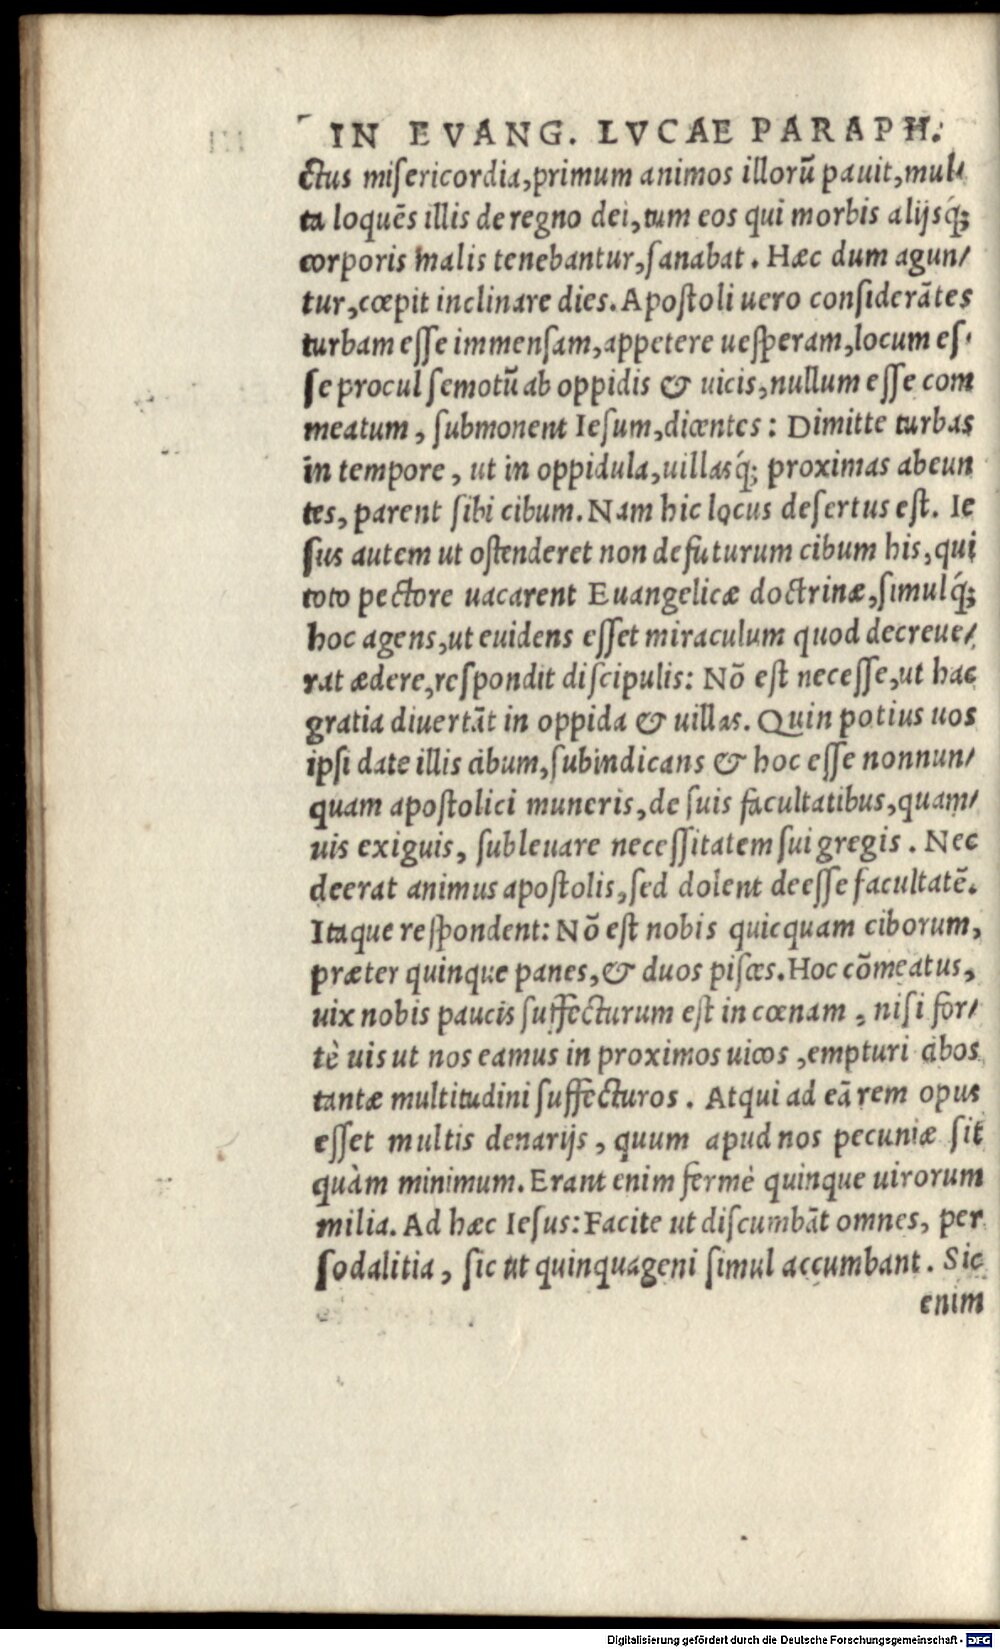 IN EVANG. LVCAE PARAPH.
ctus misericordia, primum animos illorū pauit, mul/
ta loquēs illis de regno dei, tum eos qui morbis alijsq́;
corporis malis tenebantur, sanabat. Hæc dum agun/
tur, cœpit inclinare dies. Apostoli uero considerātes
turbam esse immensam, appetere uesperam, locum es/
se procul semotū ab oppidis & uicis, nullum esse com
meatum, submonent Iesum, dicentes: Dimitte turbas
in tempore, ut in oppidula, uillasq́; proximas abeun
tes, parent sibi cibum. Nam hic locus desertus est. Ie
sus autem ut ostenderet non defuturum cibum his, qui
toto pectore uacarent Euangelicæ doctrinæ, simulq́;
hoc agens, ut euidens esset miraculum quod decreue/
rat ædere, respondit discipulis: Nō est necesse, ut hac
gratia diuertāt in oppida & uillas. Quin potius uos
ipsi date illis cibum, subindicans & hoc esse nonnun/
quam apostolici muneris, de suis facultatibus, quam/
uis exiguis, subleuare necessitatem sui gregis. Nec
deerat animus apostolis, sed dolent deesse facultatē.
Itaque respondent: Nō est nobis quicquam ciborum,
præter quinque panes, & duos pisces. Hoc cōmeatus,
uix nobis paucis suffecturum est in cœnam, nisi for/
tè uis ut nos eamus in proximos uicos, empturi cibos
tantæ multitudini suffecturos. Atqui ad eā rem opus
esset multis denarijs, quum apud nos pecuniæ sit
quàm minimum. Erant enim fermè quinque uirorum
milia. Ad hæc Iesus: Facite ut discumbāt omnes, per
sodalitia, sic ut quinquageni simul accumbant. Sic
enim
Digitalisierung gefördert durch die Deutsche Forschungsgemeinschaft - DFG